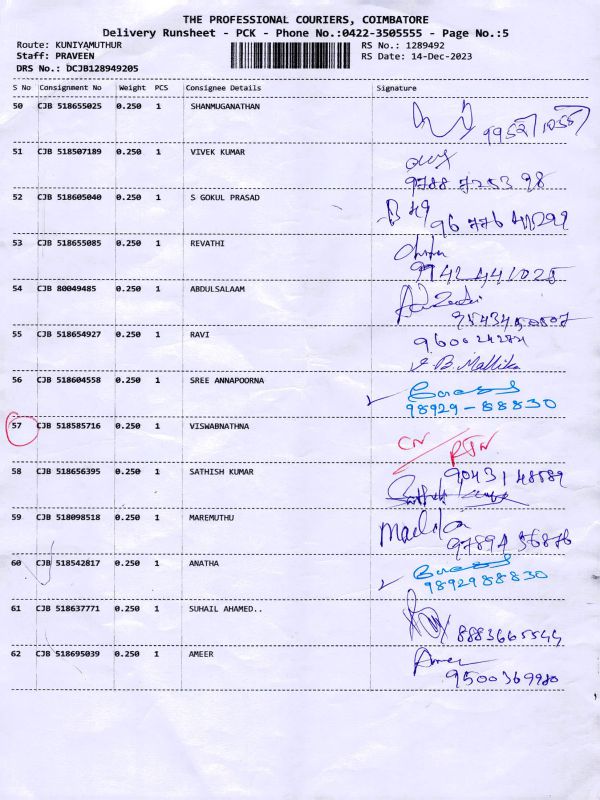 THE PROFESSIONAL COURIERS, COIMBATORE
Delivery Runsheet - PCK - Phone No.:0422-3505555 - Page No.:5
Route: KUNIYAMUTHUR RS No.: 1289492
Staff: PRAVEEN RS Date: 14-Dec-2023
DRS No.: DCJB128949205
S No Consignment No Weight PCS Consignee Details Signature
50 CJB 518655025 0.250 1 SHANMUGANATHAN
51 CJB 518507189 0.250 1 VIVEK KUMAR
9788 7253 98
52 CJB 518605040 0.250 1 S GOKUL PRASAD
53 CJB 518655085 0.250 1 REVATHI
9942 441025
54 CJB 80049485 0.250 1 ABDULSALAAM
55 CJB 518654927 0.250 1 RAVI
B. Mallika
56 CJB 518604558 0.250 1 SREE ANNAPOORNA
98929-88830
57 CJB 518585716 0.250 1 VISWABNATHNA CN / RTN
58 CJB 518656395 0.250 1 SATHISH KUMAR
90431 48589
59 CJB 518098518 0.250 1 MAREMUTHU
97894 56876
60 CJB 518542817 0.250 1 ANATHA
9892988830
61 CJB 518637771 0.250 1 SUHAIL AHAMED..
8883665544
62 CJB 518695039 0.250 1 AMEER Ameer
9500369980